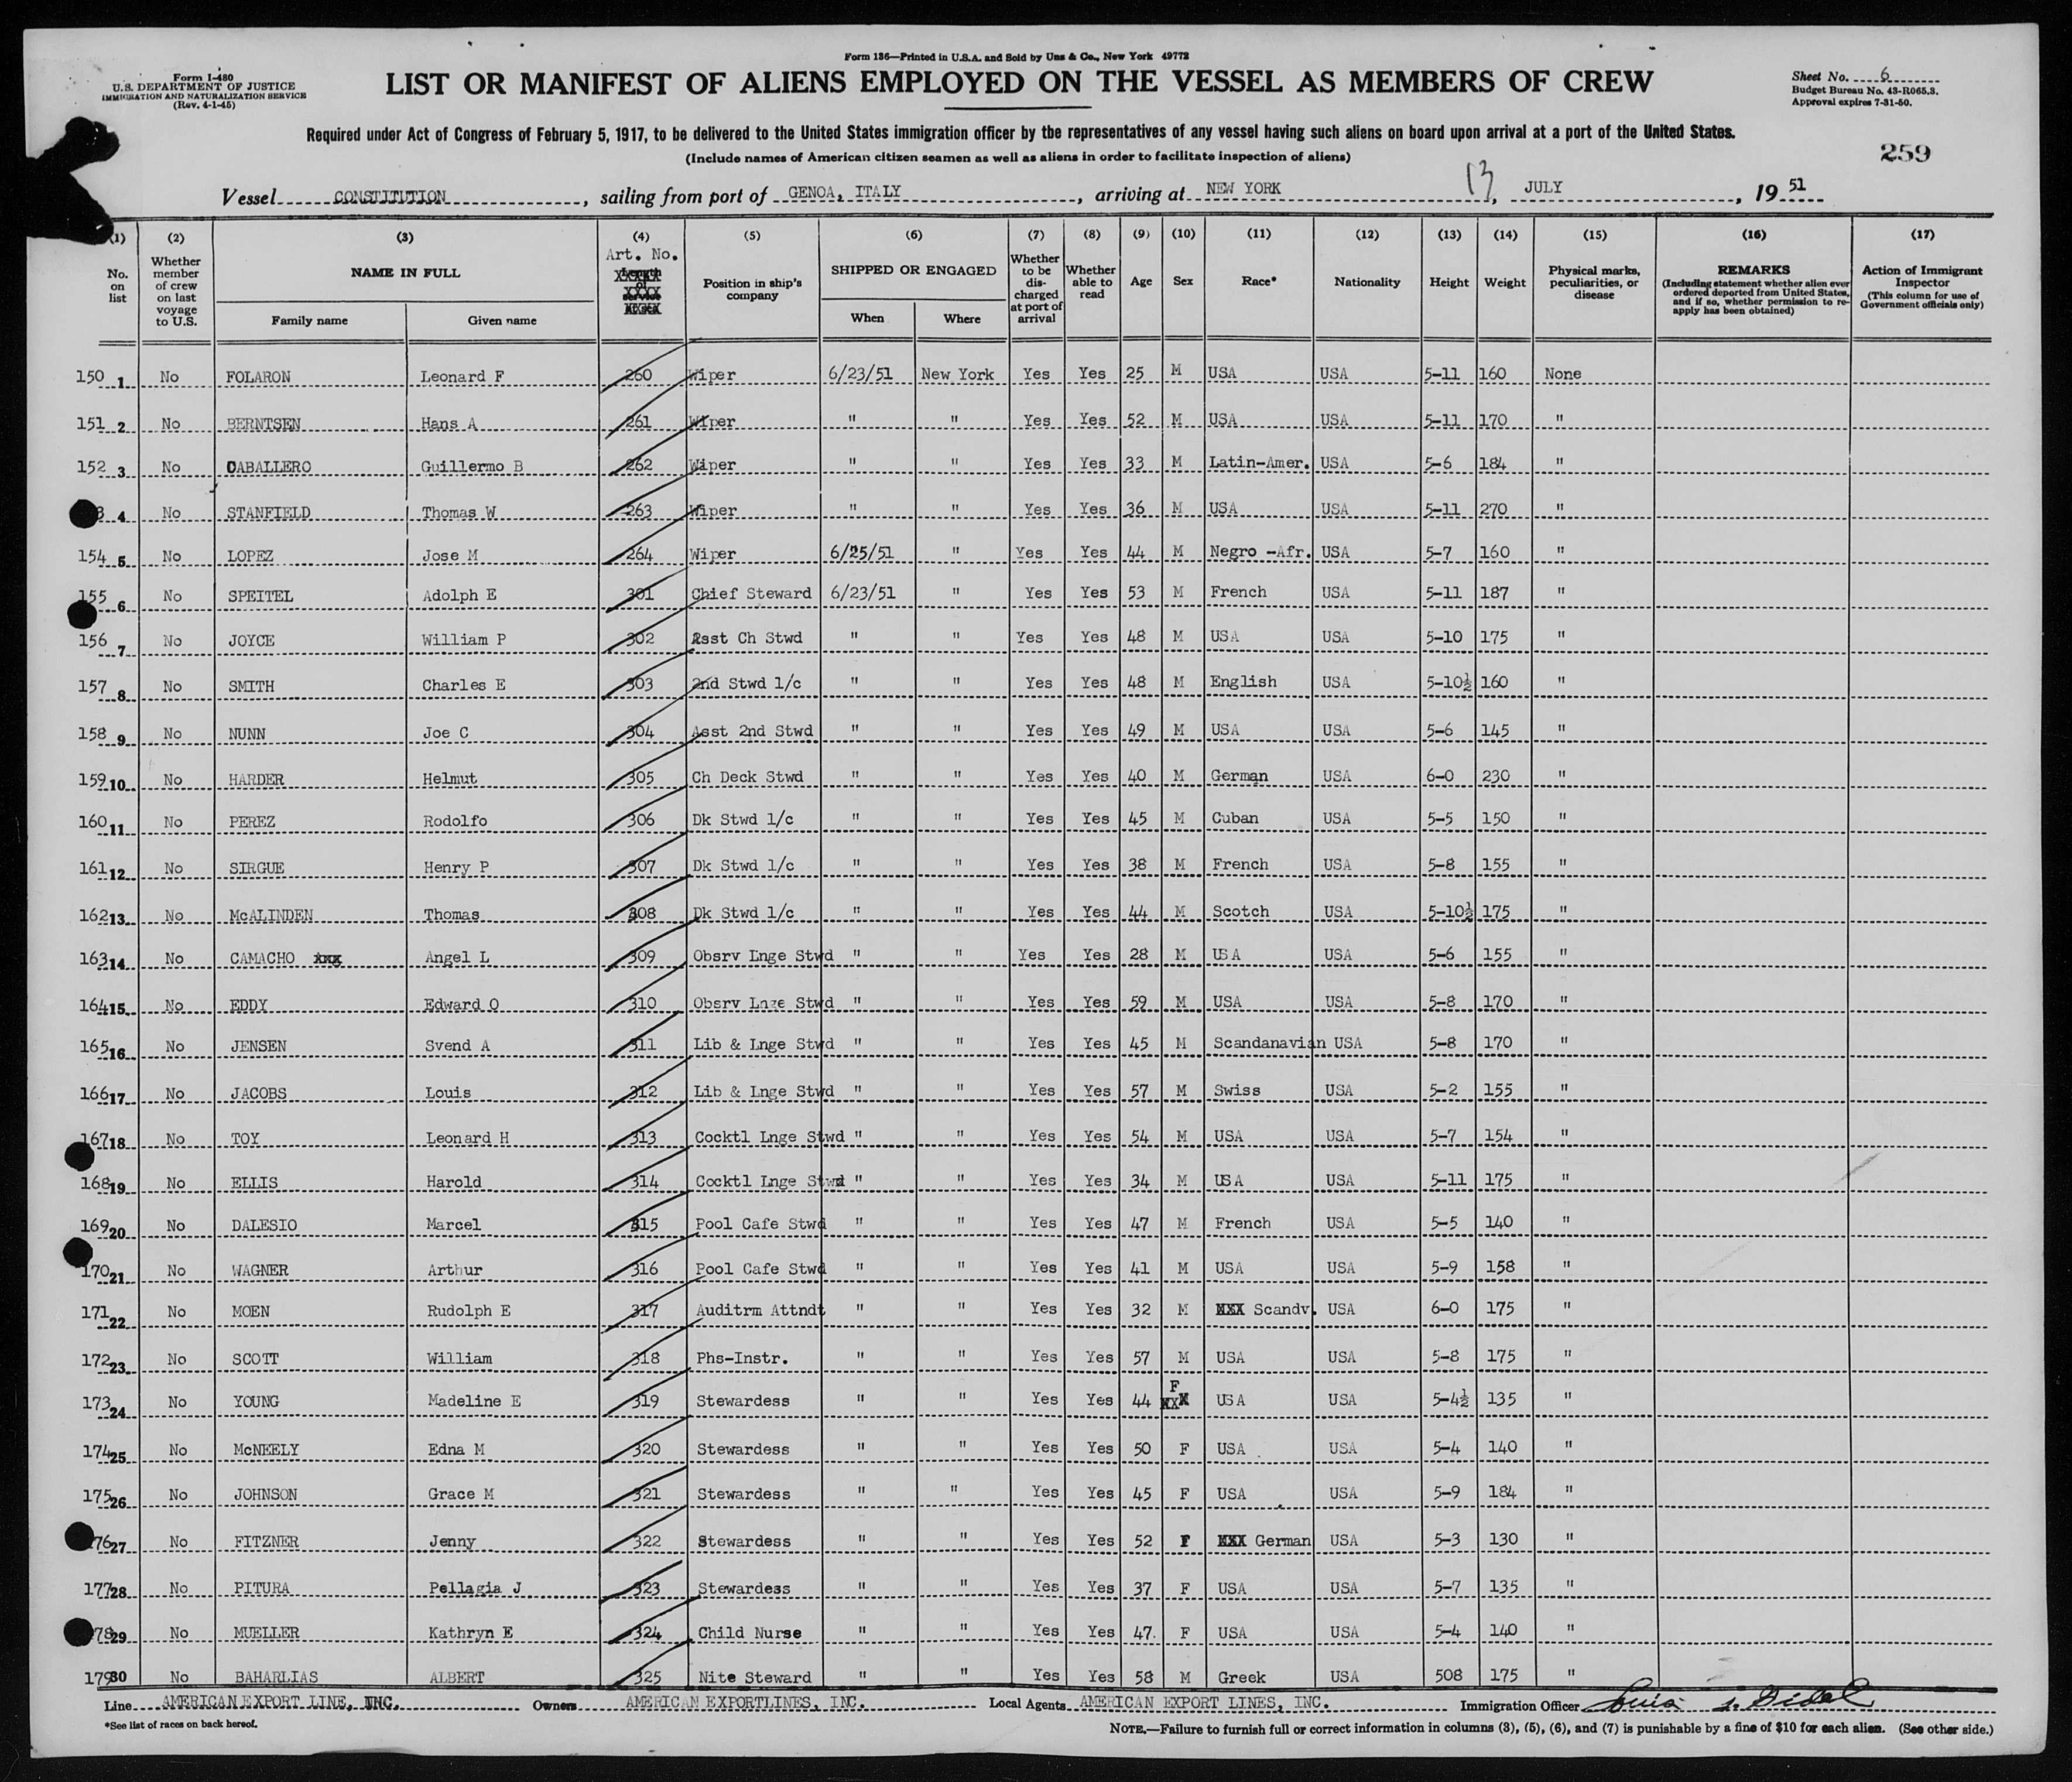 Form 136—Printed in U.S.A. and Sold by Unz & Co., New York 49772
Form I-480
U.S. DEPARTMENT OF JUSTICE
IMMIGRATION AND NATURALIZATION SERVICE
(Rev. 4-1-45)
LIST OR MANIFEST OF ALIENS EMPLOYED ON THE VESSEL AS MEMBERS OF CREW
Sheet No. 6
Budget Bureau No. 43-R065.3.
Approval expires 7-31-50.
Required under Act of Congress of February 5, 1917, to be delivered to the United States immigration officer by the representatives of any vessel having such aliens on board upon arrival at a port of the United States.
(Include names of American citizen seamen as well as aliens in order to facilitate inspection of aliens)
259
Vessel CONSTITUTION, sailing from port of GENOA, ITALY, arriving at NEW YORK 13, JULY, 19 51
(1) (2) (3) (4) (5) (6) (7) (8) (9) (10) (11) (12) (13) (14) (15) (16) (17)
No. on list
Whether member of crew on last voyage to U.S.
NAME IN FULL
Family name Given name
Art. No.
Length of service
Position in ship's company
SHIPPED OR ENGAGED
When Where
Whether to be discharged at port of arrival
Whether able to read
Age Sex Race* Nationality Height Weight
Physical marks, peculiarities, or disease
REMARKS
(Including statement whether alien ever ordered deported from United States, and if so, whether permission to re-apply has been obtained)
Action of Immigrant Inspector
(This column for use of Government officials only)
150 1 No FOLARON Leonard F 260 Wiper 6/23/51 New York Yes Yes 25 M USA USA 5-11 160 None
151 2 No BERNTSEN Hans A 261 Wiper " " Yes Yes 52 M USA USA 5-11 170 "
152 3 No CABALLERO Guillermo B 262 Wiper " " Yes Yes 33 M Latin-Amer. USA 5-6 184 "
3 4 No STANFIELD Thomas W 263 Wiper " " Yes Yes 36 M USA USA 5-11 270 "
154 5 No LOPEZ Jose M 264 Wiper 6/25/51 " Yes Yes 44 M Negro -Afr. USA 5-7 160 "
155 6 No SPEITEL Adolph E 301 Chief Steward 6/23/51 " Yes Yes 53 M French USA 5-11 187 "
156 7 No JOYCE William P 302 Asst Ch Stwd " " Yes Yes 48 M USA USA 5-10 175 "
157 8 No SMITH Charles E 303 2nd Stwd 1/c " " Yes Yes 48 M English USA 5-10½ 160 "
158 9 No NUNN Joe C 304 Asst 2nd Stwd " " Yes Yes 49 M USA USA 5-6 145 "
159 10 No HARDER Helmut 305 Ch Deck Stwd " " Yes Yes 40 M German USA 6-0 230 "
160 11 No PEREZ Rodolfo 306 Dk Stwd 1/c " " Yes Yes 45 M Cuban USA 5-5 150 "
161 12 No SIRGUE Henry P 307 Dk Stwd 1/c " " Yes Yes 38 M French USA 5-8 155 "
162 13 No McALINDEN Thomas 308 Dk Stwd 1/c " " Yes Yes 44 M Scotch USA 5-10½ 175 "
163 14 No CAMACHO xxx Angel L 309 Obsrv Lnge Stwd " " Yes Yes 28 M USA USA 5-6 155 "
164 15 No EDDY Edward O 310 Obsrv Lnge Stwd " " Yes Yes 59 M USA USA 5-8 170 "
165 16 No JENSEN Svend A 311 Lib & Lnge Stwd " " Yes Yes 45 M Scandanavian USA 5-8 170 "
166 17 No JACOBS Louis 312 Lib & Lnge Stwd " " Yes Yes 57 M Swiss USA 5-2 155 "
167 18 No TOY Leonard H 313 Cocktl Lnge Stwd " " Yes Yes 54 M USA USA 5-7 154 "
168 19 No ELLIS Harold 314 Cocktl Lnge Stwd " " Yes Yes 34 M USA USA 5-11 175 "
169 20 No DALESIO Marcel 315 Pool Cafe Stwd " " Yes Yes 47 M French USA 5-5 140 "
170 21 No WAGNER Arthur 316 Pool Cafe Stwd " " Yes Yes 41 M USA USA 5-9 158 "
171 22 No MOEN Rudolph E 317 Auditrm Attndt " " Yes Yes 32 M XXX Scandv. USA 6-0 175 "
172 23 No SCOTT William 318 Phs-Instr. " " Yes Yes 57 M USA USA 5-8 175 "
173 24 No YOUNG Madeline E 319 Stewardess " " Yes Yes 44 F XXX USA USA 5-4½ 135 "
174 25 No McNEELY Edna M 320 Stewardess " " Yes Yes 50 F USA USA 5-4 140 "
175 26 No JOHNSON Grace M 321 Stewardess " " Yes Yes 45 F USA USA 5-9 184 "
76 27 No FITZNER Jenny 322 Stewardess " " Yes Yes 52 F XXX German USA 5-3 130 "
177 28 No PITURA Pellagia J 323 Stewardess " " Yes Yes 37 F USA USA 5-7 135 "
78 29 No MUELLER Kathryn E 324 Child Nurse " " Yes Yes 47 F USA USA 5-4 140 "
179 30 No BAHARLIAS ALBERT 325 Nite Steward " " Yes Yes 58 M Greek USA 508 175 "
Line AMERICAN EXPORT LINE, INC. Owners AMERICAN EXPORTLINES, INC. Local Agents AMERICAN EXPORT LINES, INC. Immigration Officer
*See list of races on back hereof.
NOTE.—Failure to furnish full or correct information in columns (3), (5), (6), and (7) is punishable by a fine of $10 for each alien. (See other side.)